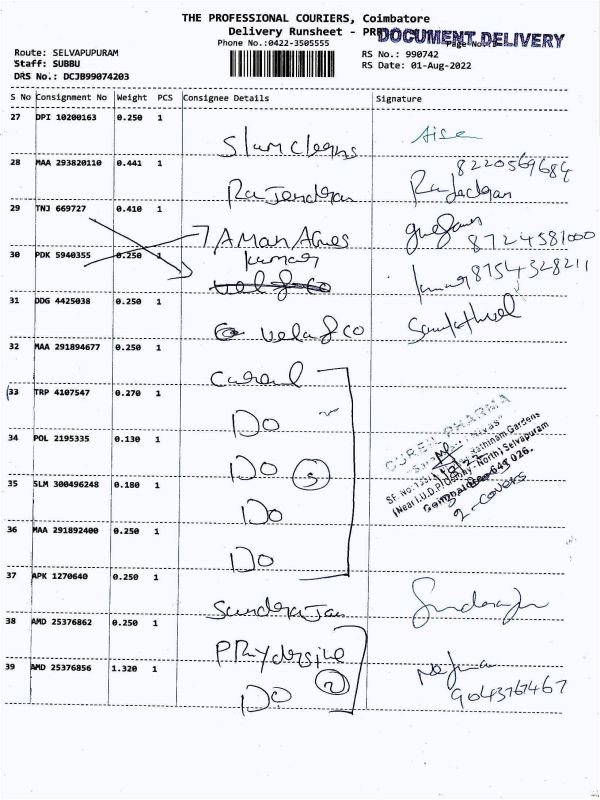 THE PROFESSIONAL COURIERS, Coimbatore
Delivery Runsheet - PR
DOCUMENT DELIVERY
Phone No.:0422-3505555
Page No.
Route: SELVAPUPURAM
RS No.: 990742
Staff: SUBBU
RS Date: 01-Aug-2022
DRS No.: DCJB99074203
S No Consignment No Weight PCS Consignee Details Signature
27 DPI 10200163 0.250 1
28 MAA 293820110 0.441 1 Rajendran 8220569684
29 TNJ 669727 0.410 1 AMAN 8724581000
30 PDK 5940355 0.250 1 kumar 8754328211
31 DDG 4425038 0.250 1 vela & co
32 MAA 291894677 0.250 1
33 TRP 4107547 0.270 1 Do
34 POL 2195335 0.130 1 Do 5
35 SLM 300496248 0.180 1 Do
36 MAA 291892400 0.250 1 Do
CUREIL PHARMA
(Near I.U.D.P. Colony - North) Selvapuram
2-covers
37 APK 1270640 0.250 1 Sundarajan
38 AMD 25376862 0.250 1
39 AMD 25376856 1.320 1 Do 2 9043767467